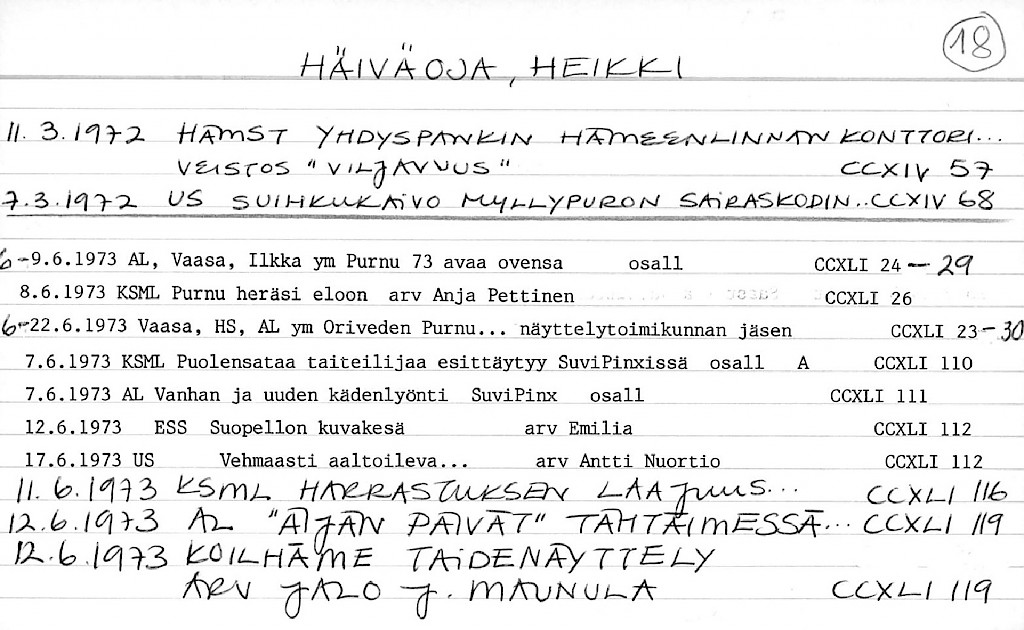 18
HÄIVÄOJA, HEIKKI
11.3.1972 HÄMST YHDYSPANKIN HÄMEENLINNAN KONTTORI...
VEISTOS "VILJAVUUS" CCXIV 57
7.3.1972 US SUIHKUKAIVO MYLLYPURON SAIRASKODIN.. CCXIV 68
6-9.6.1973 AL, Vaasa, Ilkka ym Purnu 73 avaa ovensa osall CCXLI 24-29
8.6.1973 KSML Purnu heräsi eloon arv Anja Pettinen CCXLI 26
6-22.6.1973 Vaasa, HS, AL ym Oriveden Purnu... näyttelytoimikunnan jäsen CCXLI 23-30
7.6.1973 KSML Puolensataa taiteilijaa esittäytyy SuviPinxissä osall A CCXLI 110
7.6.1973 AL Vanhan ja uuden kädenlyönti SuviPinx osall CCXLI 111
12.6.1973 ESS Suopellon kuvakesä arv Emilia CCXLI 112
17.6.1973 US Vehmaasti aaltoileva... arv Antti Nuortio CCXLI 112
11.6.1973 KSML HARRASTUKSEN LAAJUUS... CCXLI 116
12.6.1973 AL "ÄIJÄN PÄIVÄT" TÄHTÄIMESSÄ... CCXLI 119
12.6.1973 KOILHÄME TAIDENÄYTTELY
ARV JALO J. MAUNULA CCXLI 119